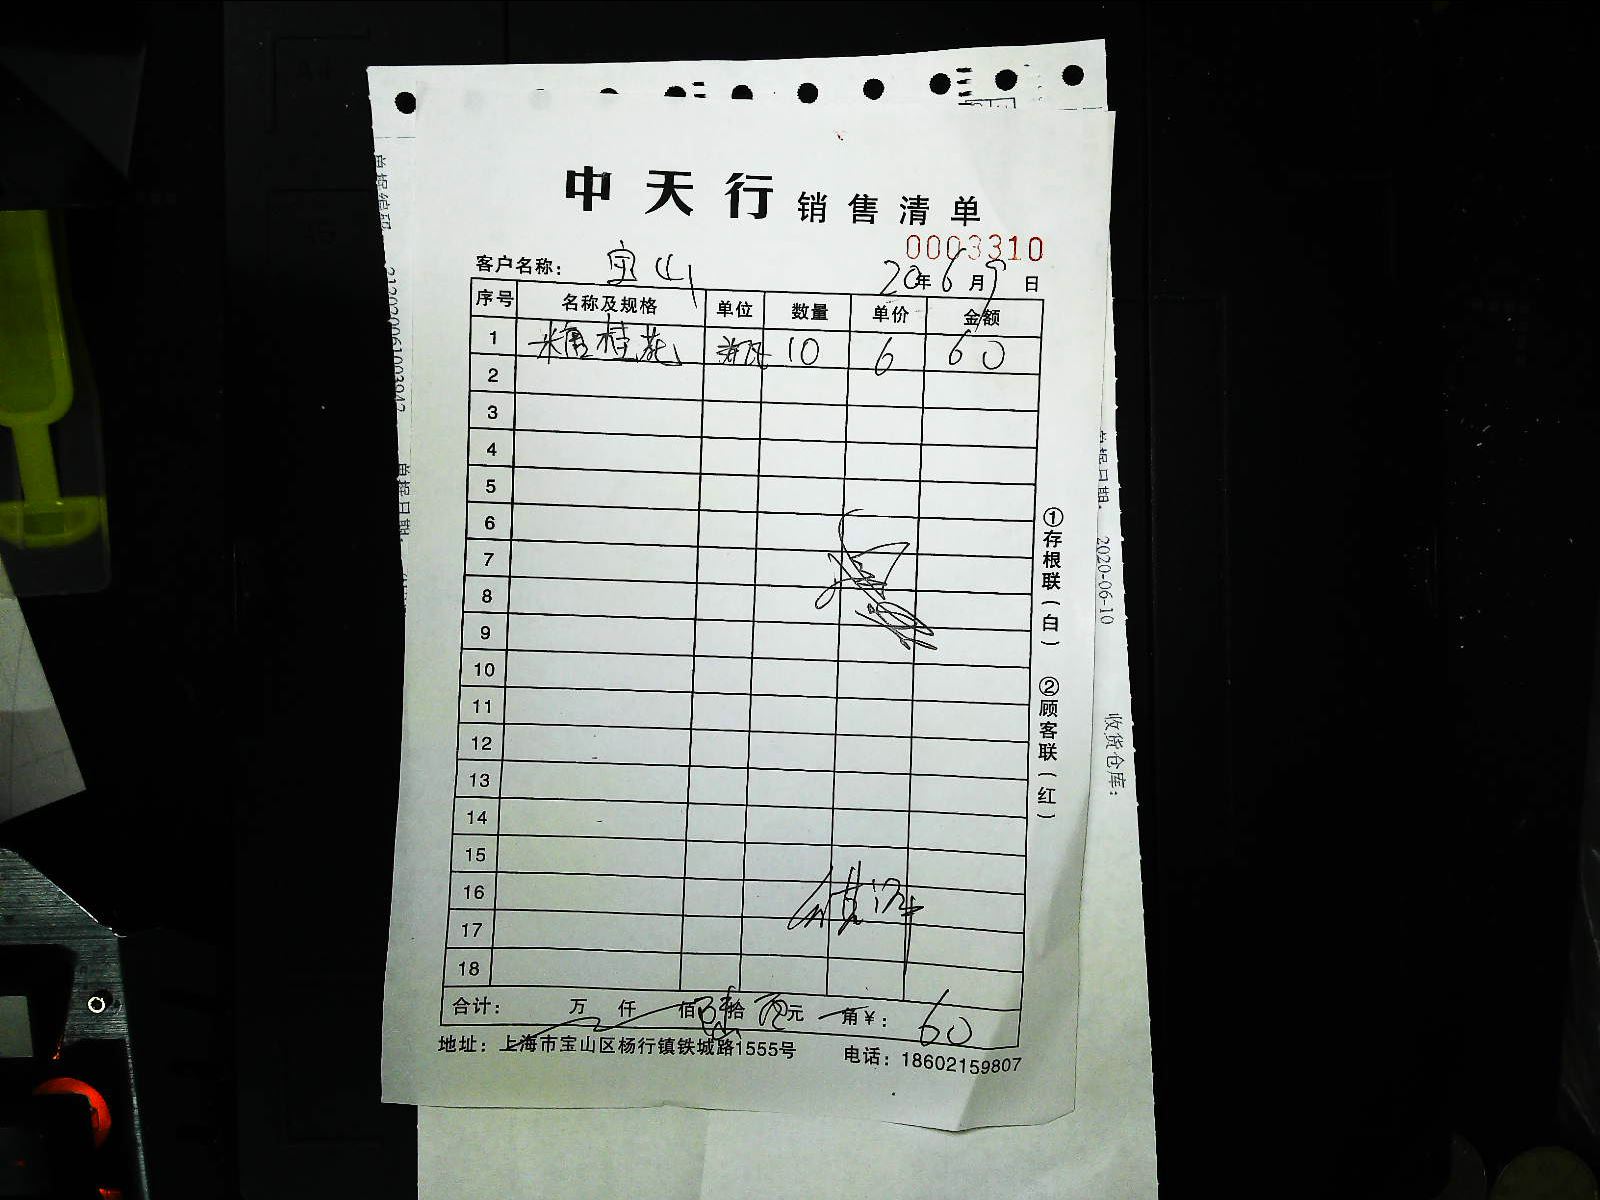 中天行 销售清单
0003310
客户名称： 宝山 20年6月9日
序号 名称及规格 单位 数量 单价 金额
1 糖桂花 瓶 10 6 60
2
3
4
5
6
7
8
9
10
11
12
13
14
15
16
17
18
合计： 万 仟 佰 陆拾 元 角 ¥： 60
地址：上海市宝山区杨行镇铁城路1555号 电话：18602159807
①存根联（白） ②顾客联（红）
单据日期：2020-06-10
收货仓库：
单据编码
单据日期：